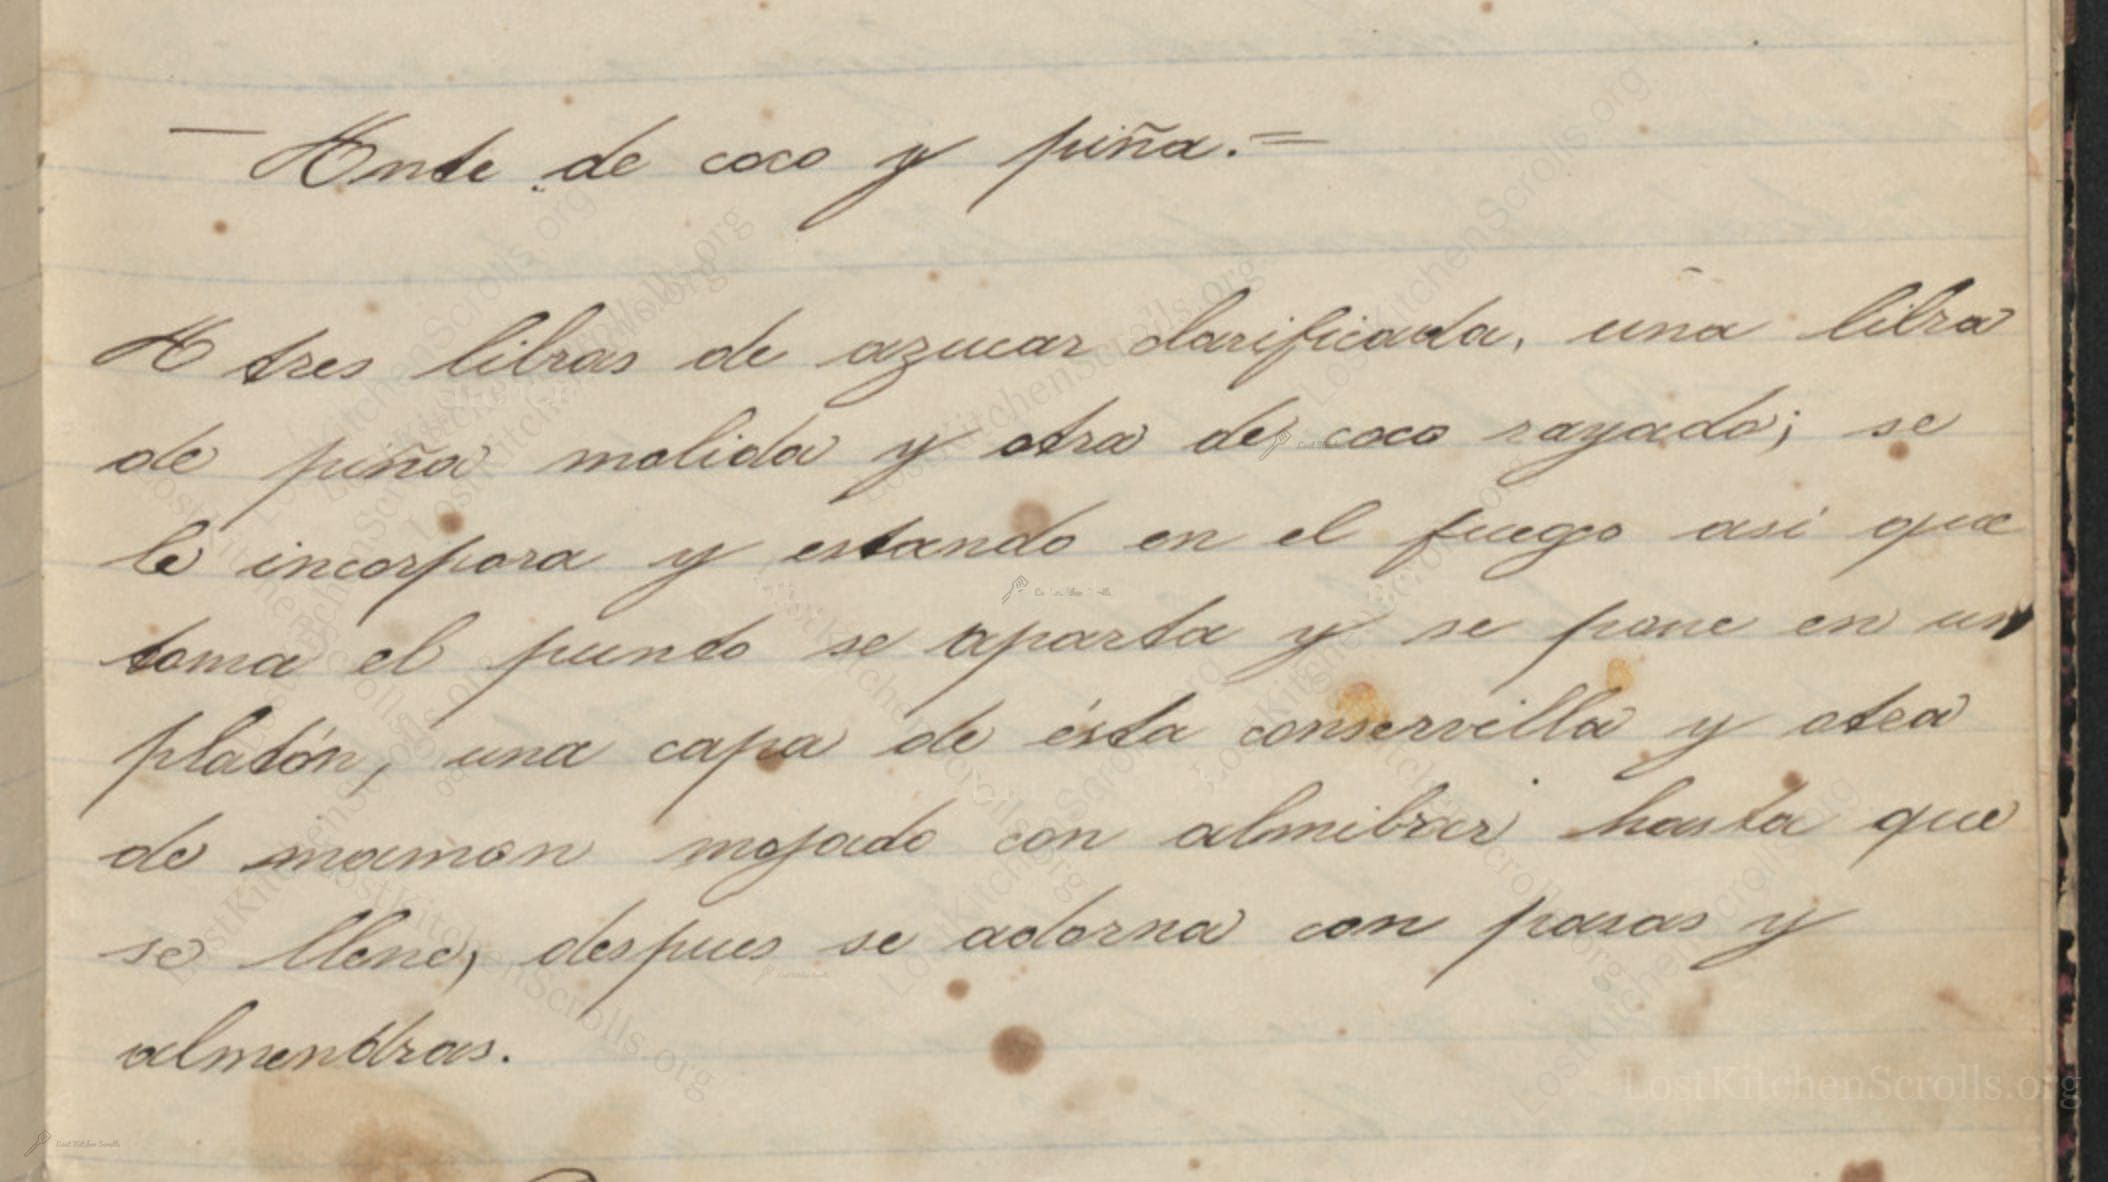 — Ante de coco y piña. =
A tres libras de azucar clarificada, una libra
de piña molida y otra de coco rayado; se
le incorpora y estando en el fuego asi que
toma el punto se aparta y se pone en un
platón, una capa de ésta conservilla y otra
de mamon mojado con almibar hasta que
se llene, despues se adorna con pasas y
almendras.
LostKitchenScrolls.org
Lost Kitchen Scrolls